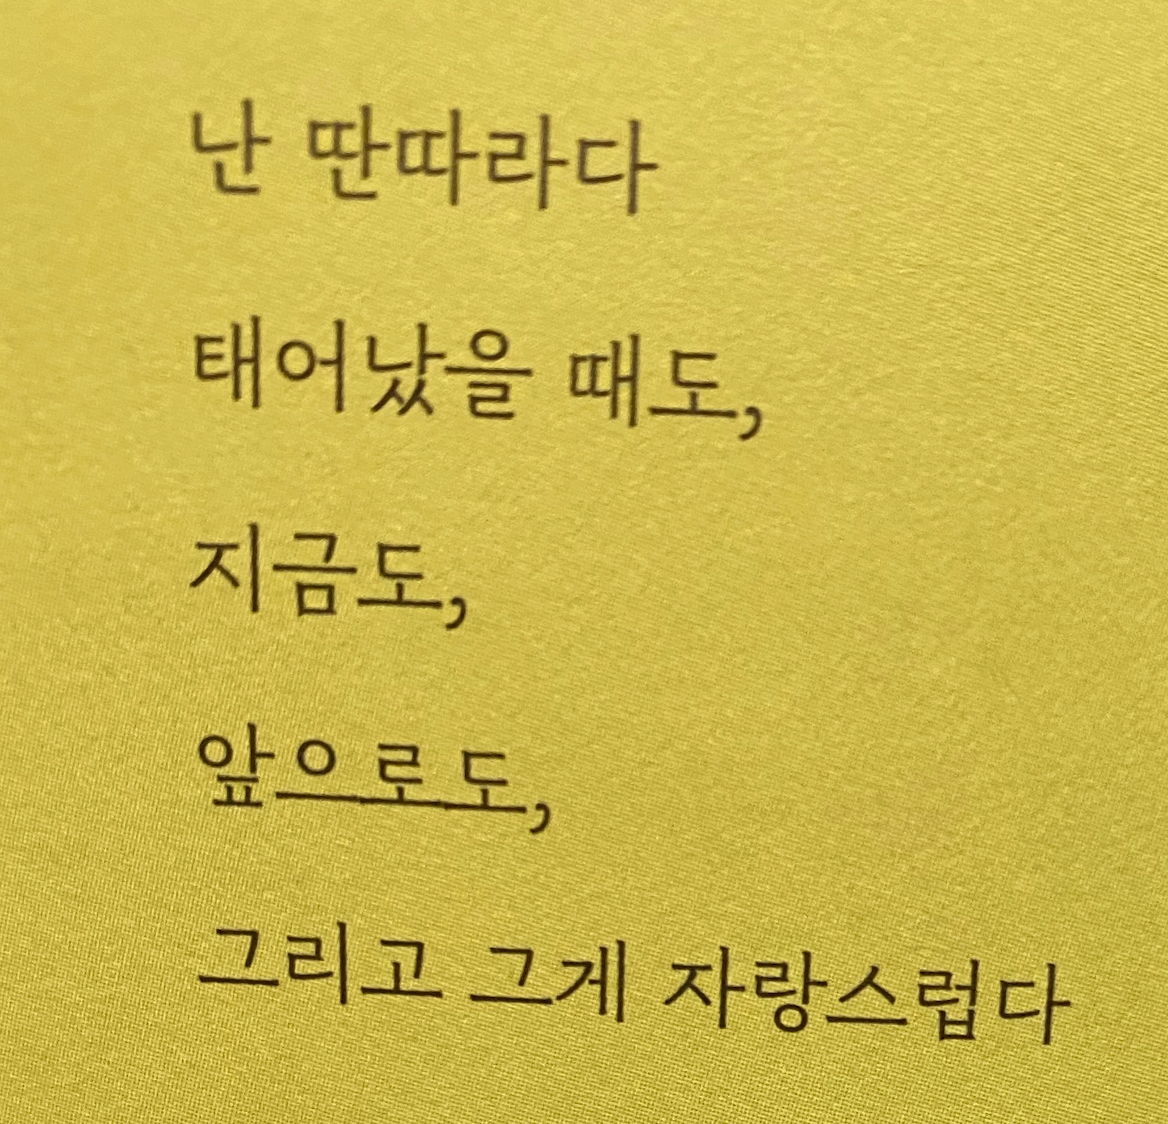 난 딴따라다
태어났을 때도,
지금도,
앞으로도,
그리고 그게 자랑스럽다